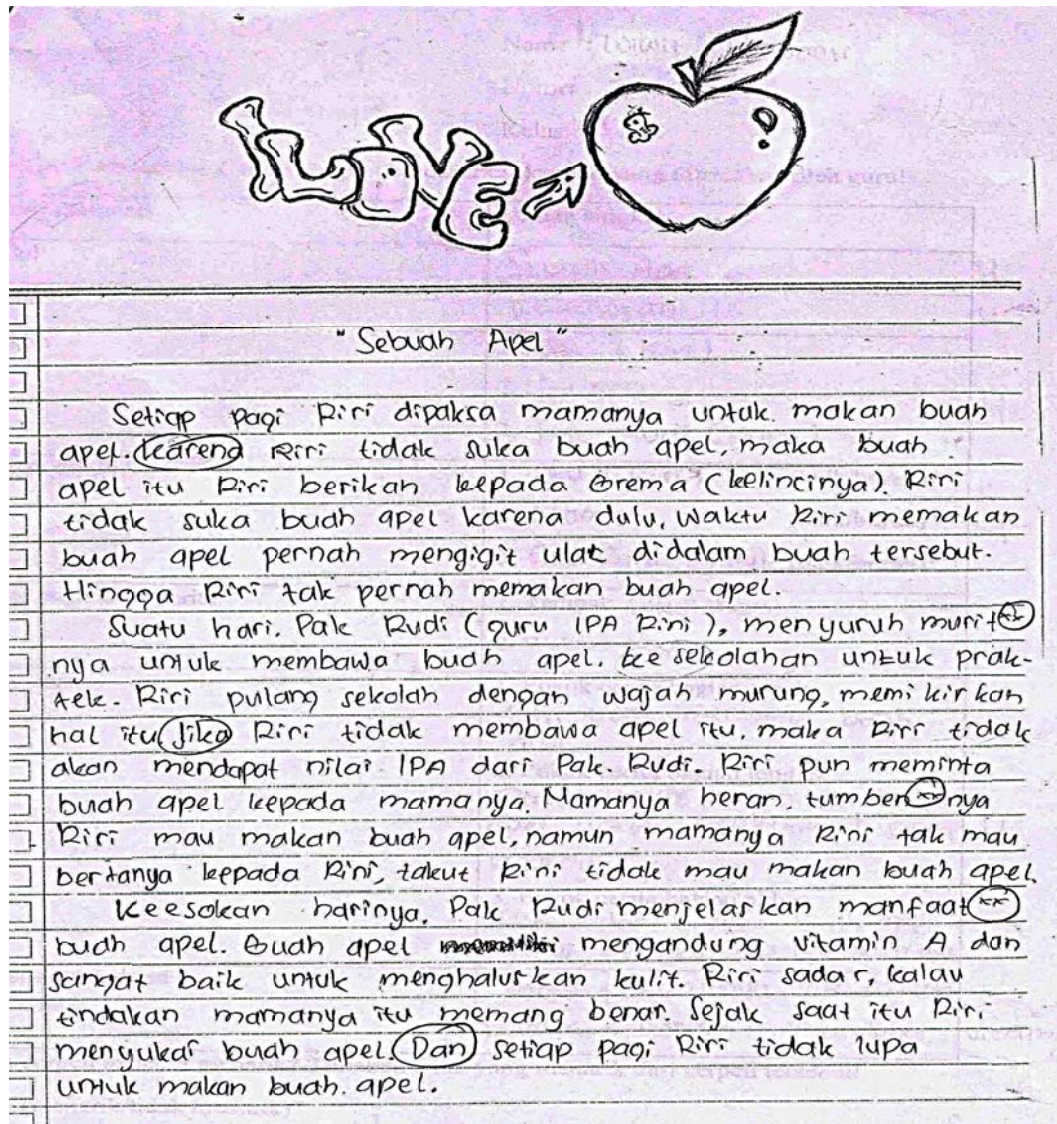 I LOVE
"Sebuah Apel"
Setiap pagi Riri dipaksa mamanya untuk makan buah
apel. karena Riri tidak suka buah apel, maka buah
apel itu Riri berikan kepada Brema (kelincinya). Riri
tidak suka buah apel karena dulu, waktu Riri memakan
buah apel pernah mengigit ulat didalam buah tersebut.
Hingga Riri tak pernah memakan buah apel.
Suatu hari. Pak Rudi (guru IPA Riri), menyuruh murit xx
nya untuk membawa buah apel. ke sekolahan untuk prak-
tek. Riri pulang sekolah dengan wajah murung, memikirkan
hal itu Jika Riri tidak membawa apel itu, maka Riri tidak
akan mendapat nilai IPA dari Pak. Rudi. Riri pun meminta
buah apel kepada mamanya. Mamanya heran. tumben xx nya
Riri mau makan buah apel, namun mamanya Riri tak mau
bertanya kepada Riri, takut Riri tidak mau makan buah apel.
Keesokan harinya. Pak Rudi menjelaskan manfaat xx
buah apel. Buah apel mengandung vitamin A dan
sangat baik untuk menghaluskan kulit. Riri sadar, kalau
tindakan mamanya itu memang benar. Sejak saat itu Riri
menyukai buah apel. Dan setiap pagi Riri tidak lupa
untuk makan buah. apel.